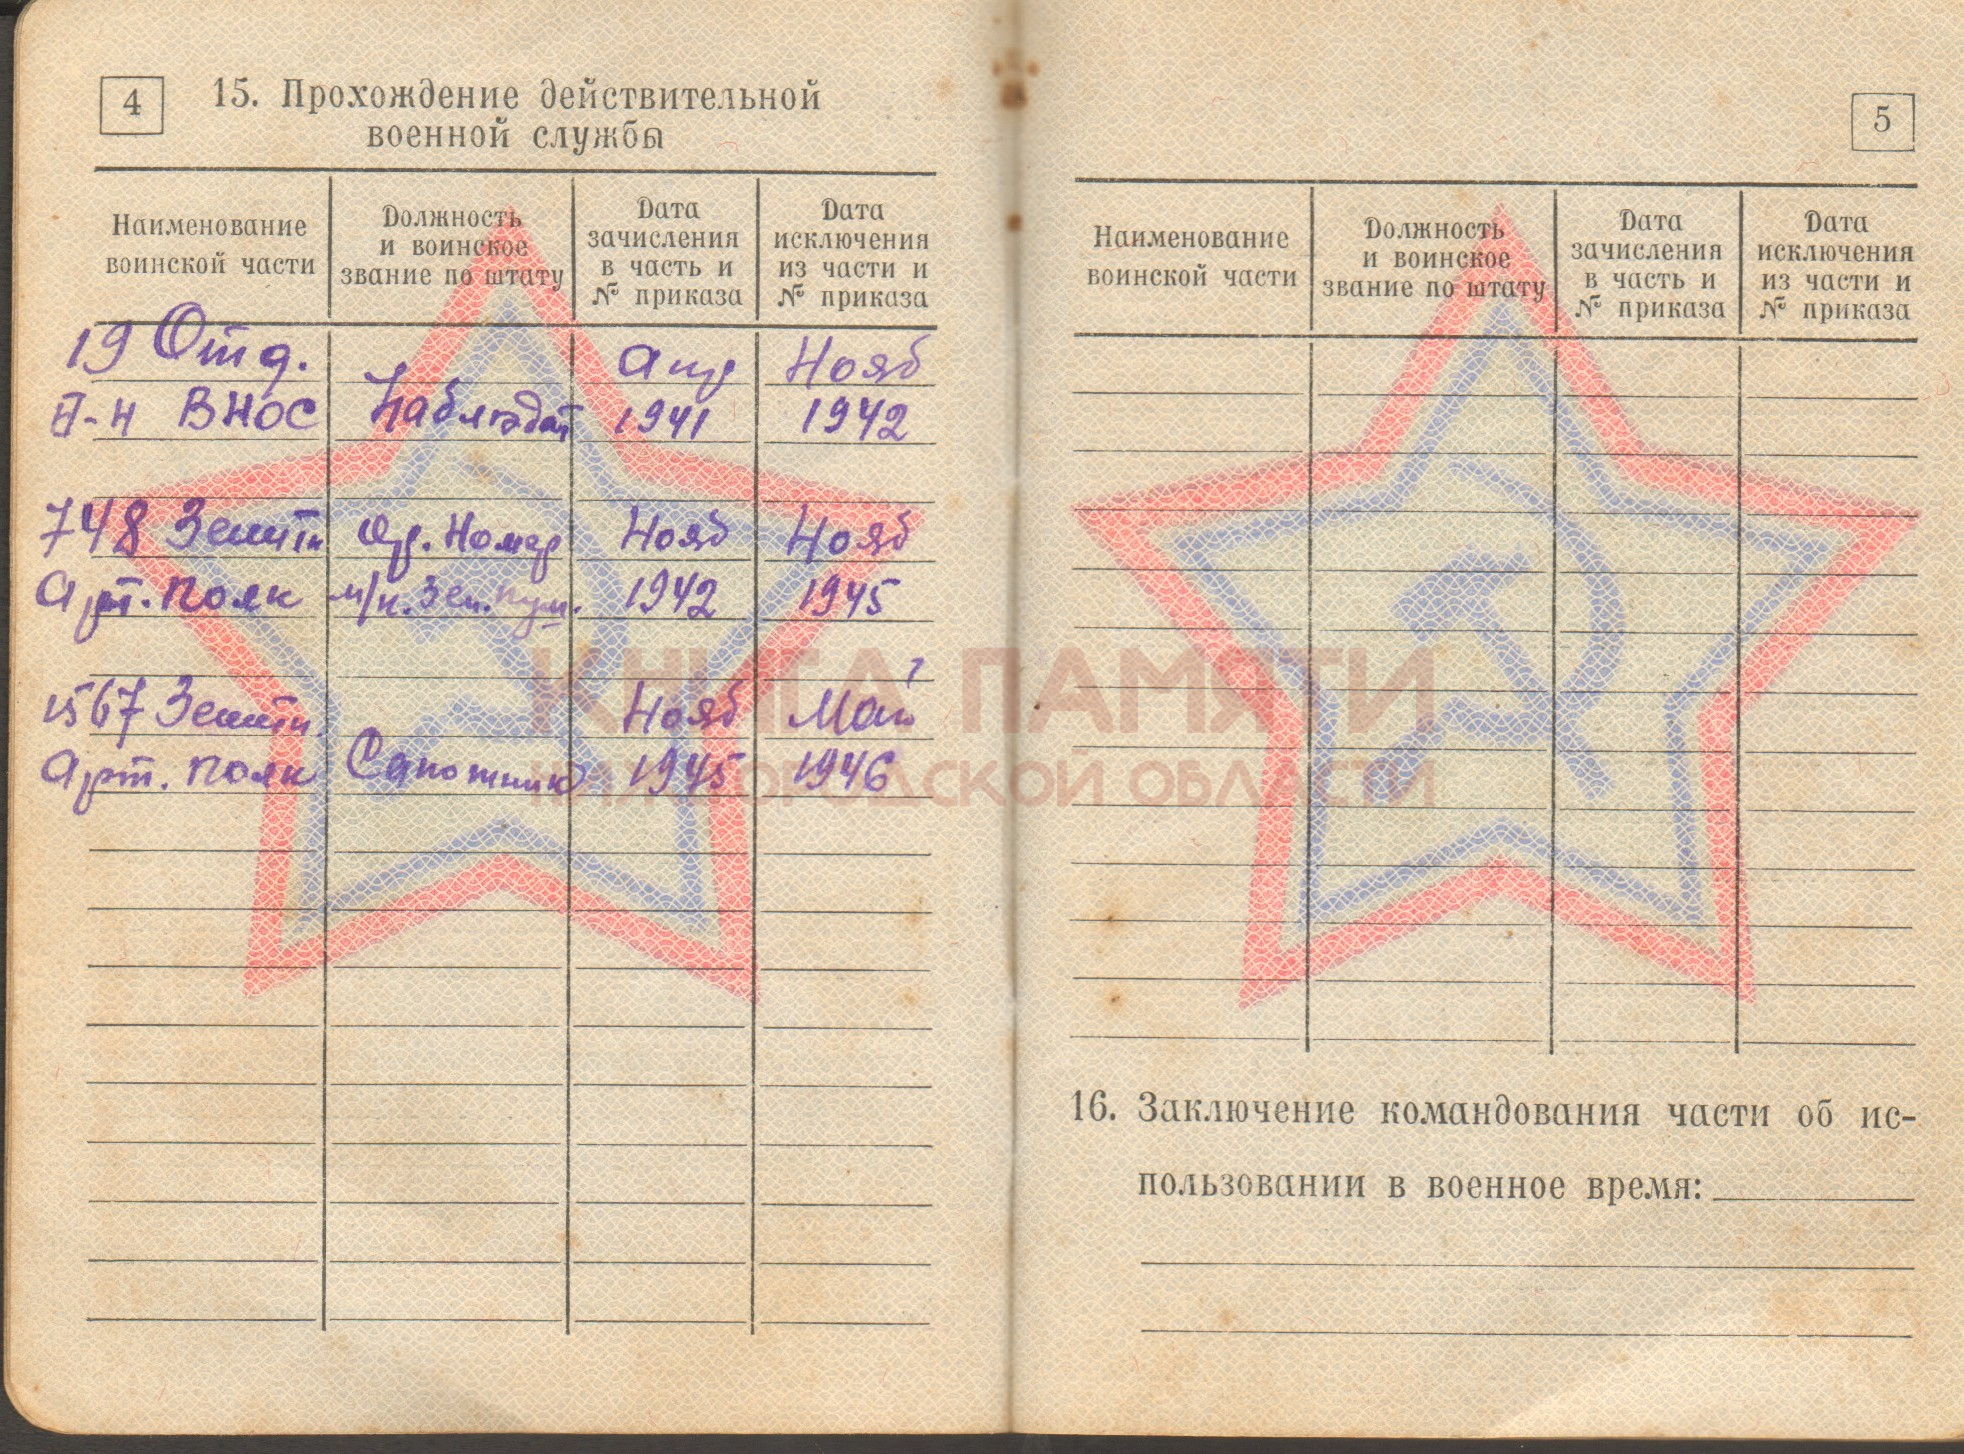 4
15. Прохождение действительной
военной службы
Наименование
воинской части
Должность
и воинское
звание по штату
Дата
зачисления
в часть и
№ приказа
Дата
исключения
из части и
№ приказа
19 Отд.
Б-н ВНОС
Наблюдат
Апр
1941
Нояб
1942
748 Зенитн
Арт. полк
Ор. Номер
м/к. Зен. пум.
Нояб
1942
Нояб
1945
1567 Зенитн.
Арт. полк
Сапожник
Нояб
1945
Май
1946
5
Наименование
воинской части
Должность
и воинское
звание по штату
Дата
зачисления
в часть и
№ приказа
Дата
исключения
из части и
№ приказа
16. Заключение командования части об ис-
пользовании в военное время:
КНИГА ПАМЯТИ
НИЖЕГОРОДСКОЙ ОБЛАСТИ